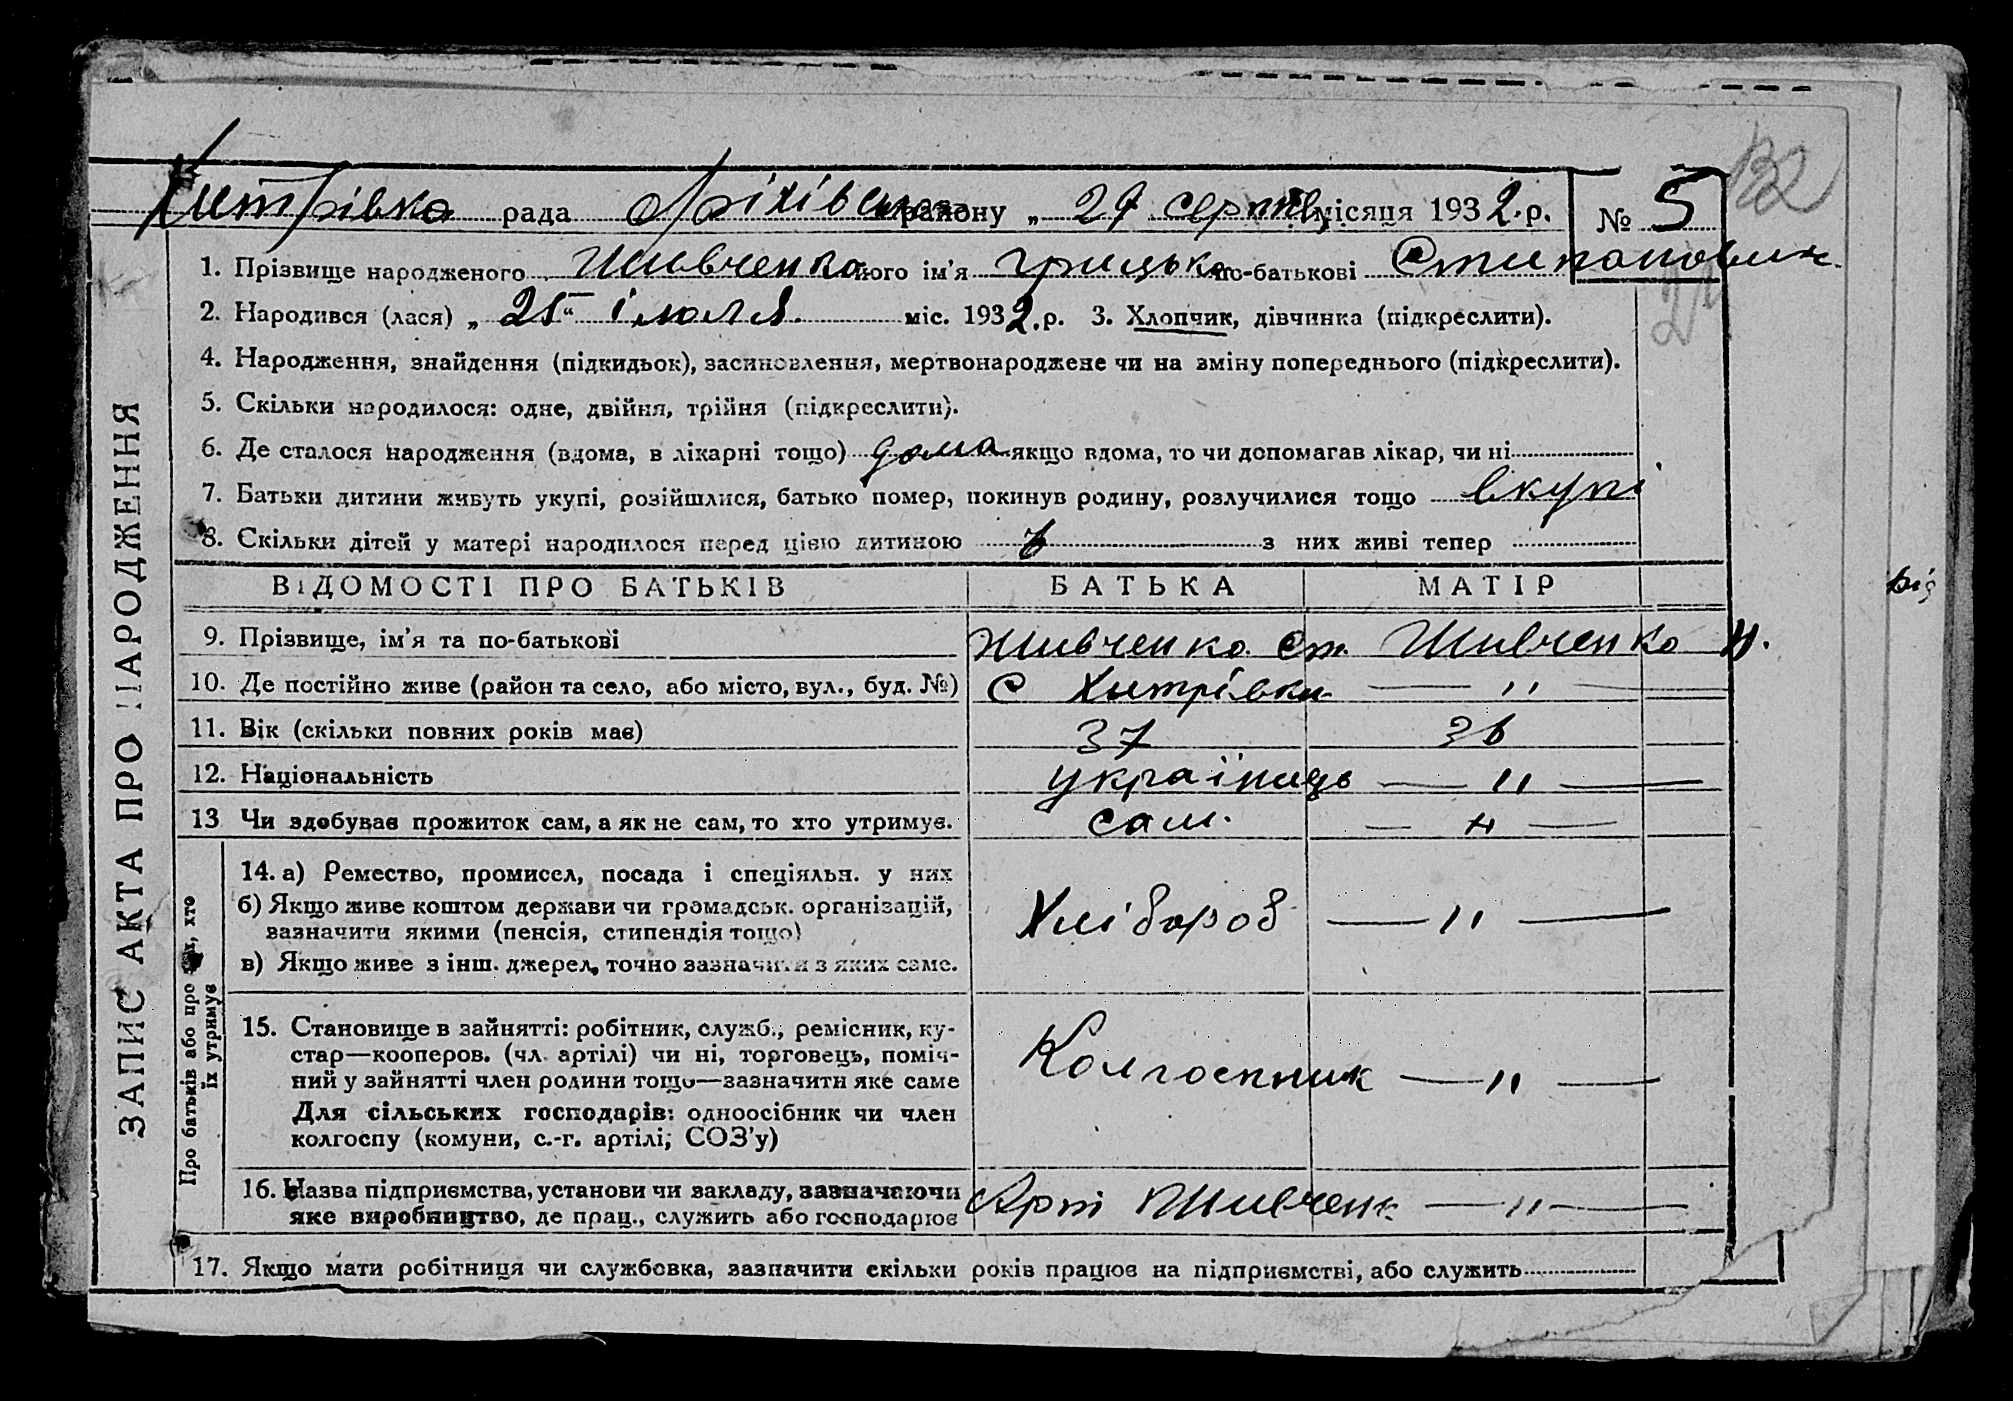 132
Хитрівка рада Оріхівського району „ 29 серпня місяця 1932 р. № 5
1. Прізвище народженого Шивченко його ім’я Грицько по-батькові Стипанович
2. Народився (лася) „ 25 “ июля міс. 1932 р. 3. Хлопчик, дівчинка (підкреслити).
4. Народження, знайдення (підкидьок), засиновлення, мертвонароджене чи на зміну попереднього (підкреслити).
5. Скільки народилося: одне, двійня, трійня (підкреслити).
6. Де сталося народження (вдома, в лікарні тощо) дома якщо вдома, то чи допомагав лікар, чи ні
7. Батьки дитини живуть укупі, розійшлися, батько помер, покинув родину, розлучилися тощо вкупі
8. Скільки дітей у матері народилося перед цією дитиною з них живі тепер
ЗАПИС АКТА ПРО НАРОДЖЕННЯ
ВІДОМОСТІ ПРО БАТЬКІВ БАТЬКА МАТІР
9. Прізвище, ім’я та по-батькові Шивченко Ст. Шивченко Н.
10. Де постійно живе (район та село, або місто, вул., буд. №) С Хитрівка — " —
11. Вік (скільки повних років має) 37 36
12. Національність українець — " —
13 Чи здобуває прожиток сам, а як не сам, то хто утримує. сам. — " —
Про батьків або про тих, хто їх утримує
14. а) Ремество, промисел, посада і спеціяльн. у них
б) Якщо живе коштом держави чи громадськ. організацій,
зазначити якими (пенсія, стипендія тощо)
в) Якщо живе з інш. джерел, точно зазначити з яких саме.
Хлібороб — " —
15. Становище в зайнятті: робітник, служб., ремісник, ку-
стар—кооперов. (чл. артілі) чи ні, торговець, поміч-
ний у зайнятті член родини тощо—зазначити яке саме
Для сільських господарів: одноосібник чи член
колгоспу (комуни, с.-г. артілі, СОЗ’у)
Колгоспник — " —
16. Назва підприємства, установи чи закладу, зазначаючи
яке виробництво, де прац., служить або господарює
Арт Шивченк — " —
17. Якщо мати робітниця чи службовка, зазначити скільки років працює на підприємстві, або служить
від